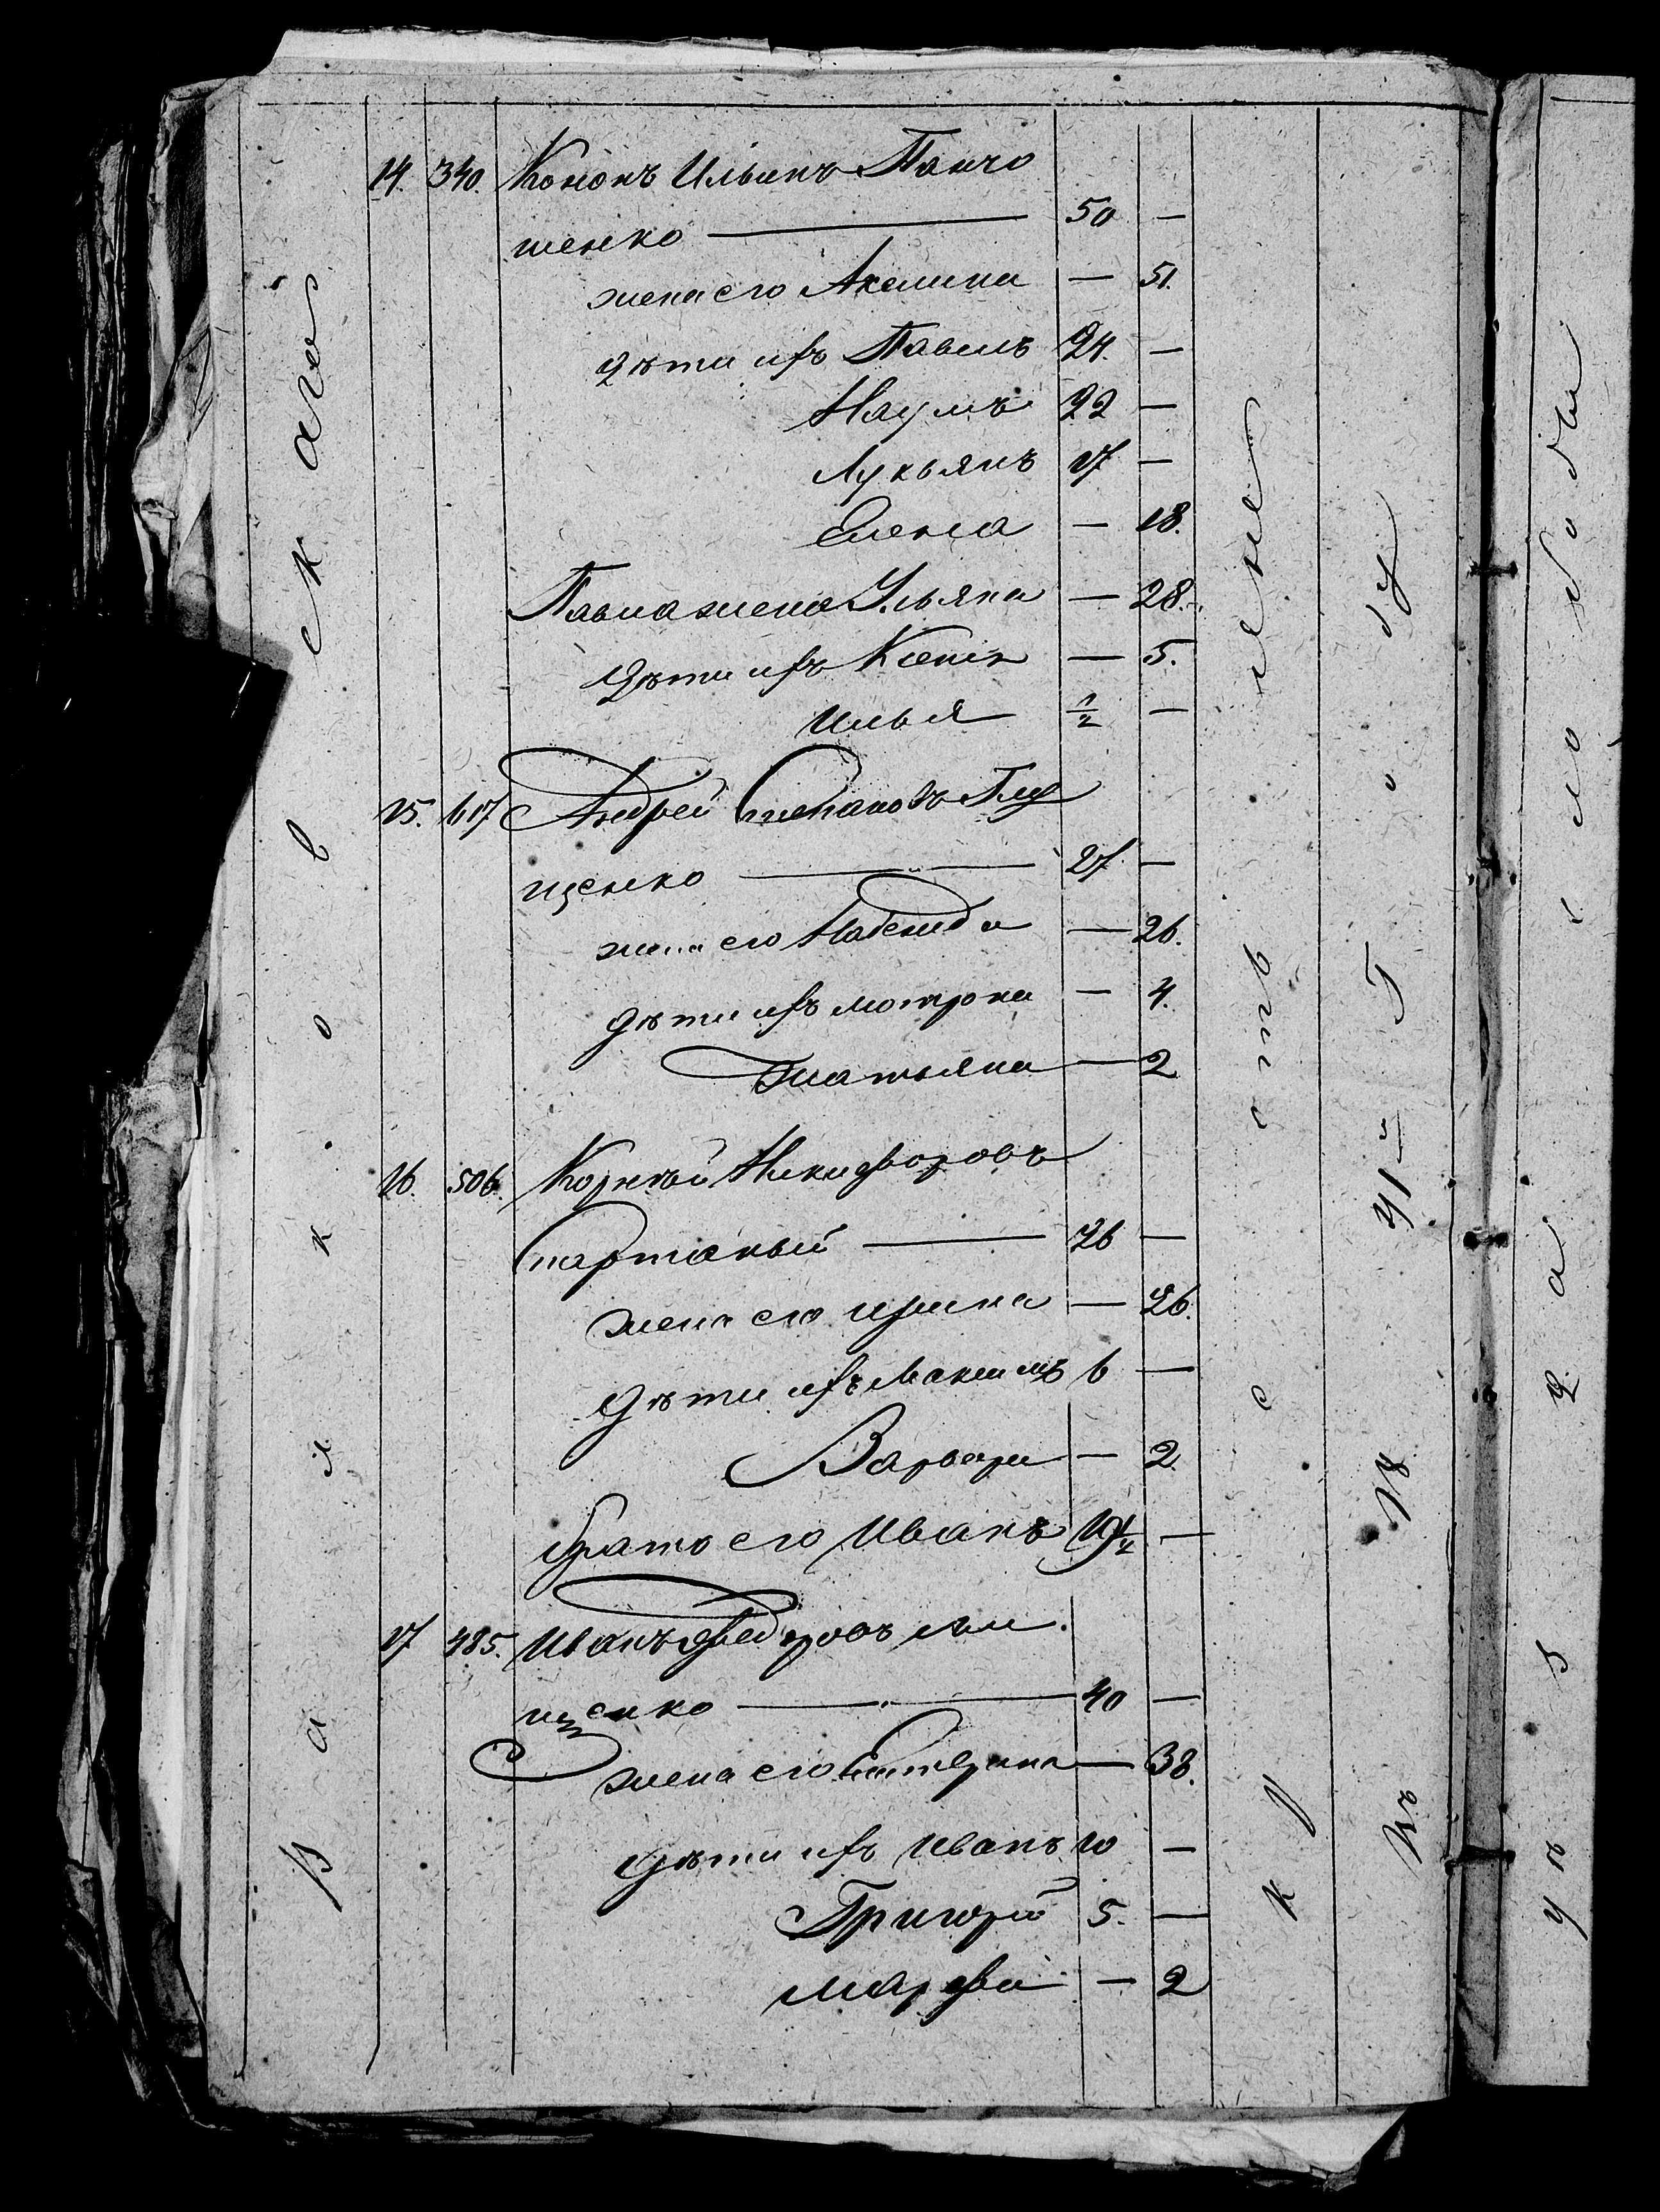 14. 340. Кононъ Ильинъ Панчо
шенко — 50 —
жена его Акелина — 51.
дѣти ихъ Павелъ 24. —
Наумъ 22 —
Лукьянъ 17 —
Елена — 18.
Павла жена Ульяна — 28.
дѣти ихъ — 5.
Илья 1/2 —
15. 617 Андрей Степановъ Глу
щенко — 27 —
жена его Надежда — 26.
дѣти ихъ Мотрона — 4.
Татьяна — 2
16. 506. Корнѣй Никифоровъ
26 —
жена его Ирина — 26.
дѣти ихъ Максимъ 6 —
Варвара — 2
братъ его Иванъ —
17 485. Иванъ Федоровъ
щенко — 40 —
жена его Катерина — 38.
дѣти ихъ Иванъ 10 —
Григорій 5. —
Марфа — 2
Валковскаго
уѣзда слободы